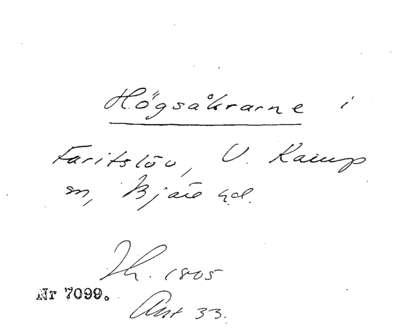 Högsåkrarne i
Faritslöv, V. Karup
sn, Bjäre hd.
Th. 1805
Nr 7099.
Akt 33.